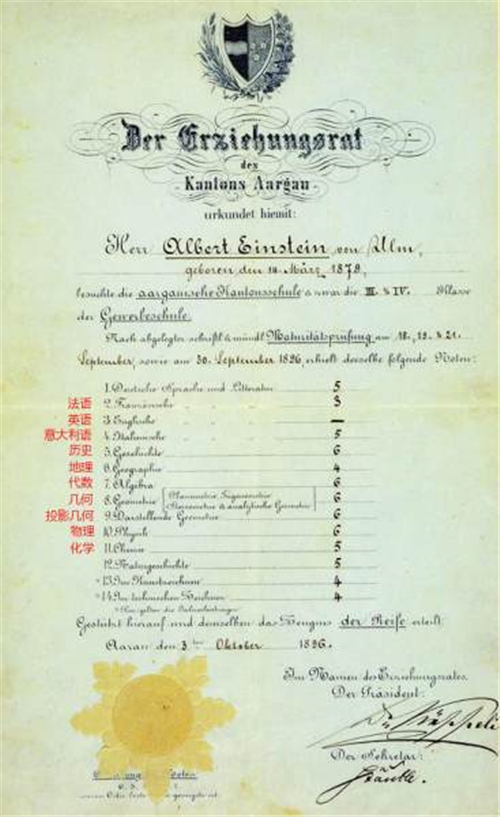 Der Erziehungsrat
des
Kantons Aargau
urkundet hiemit:
Herr Albert Einstein von Ulm,
geboren den 14. März 1879,
besuchte die aargauische Kantonsschule & zwar die III. & IV. Klasse
der Gewerbeschule.
Nach abgelegter schriftl. & mündl. Maturitätsprüfung am 18., 19. & 21.
September, sowie am 30. September 1896, erhielt derselbe folgende Noten:
1. Deutsche Sprache und Litteratur 5
法语 2. Französische 3
英语 3. Englische —
意大利语 4. Italienische 5
历史 5. Geschichte 6
地理 6. Geographie 4
代数 7. Algebra 6
几何 8. Geometrie [Planimetrie, Trigonometrie 6
Stereometrie & analytische Geometrie]
投影几何 9. Darstellende Geometrie 6
物理 10. Physik 6
化学 11. Chemie 5
12. Naturgeschichte 5
* 13. Im Kunstzeichnen 4
* 14. Im technischen Zeichnen 4
* Hier gelten die Jahresleistungen.
Gestützt hierauf wird demselben das Zeugnis der Reife erteilt.
Aarau den 3ten Oktober 1896.
Im Namen des Erziehungsrates,
Der Präsident:
Der Sekretär: